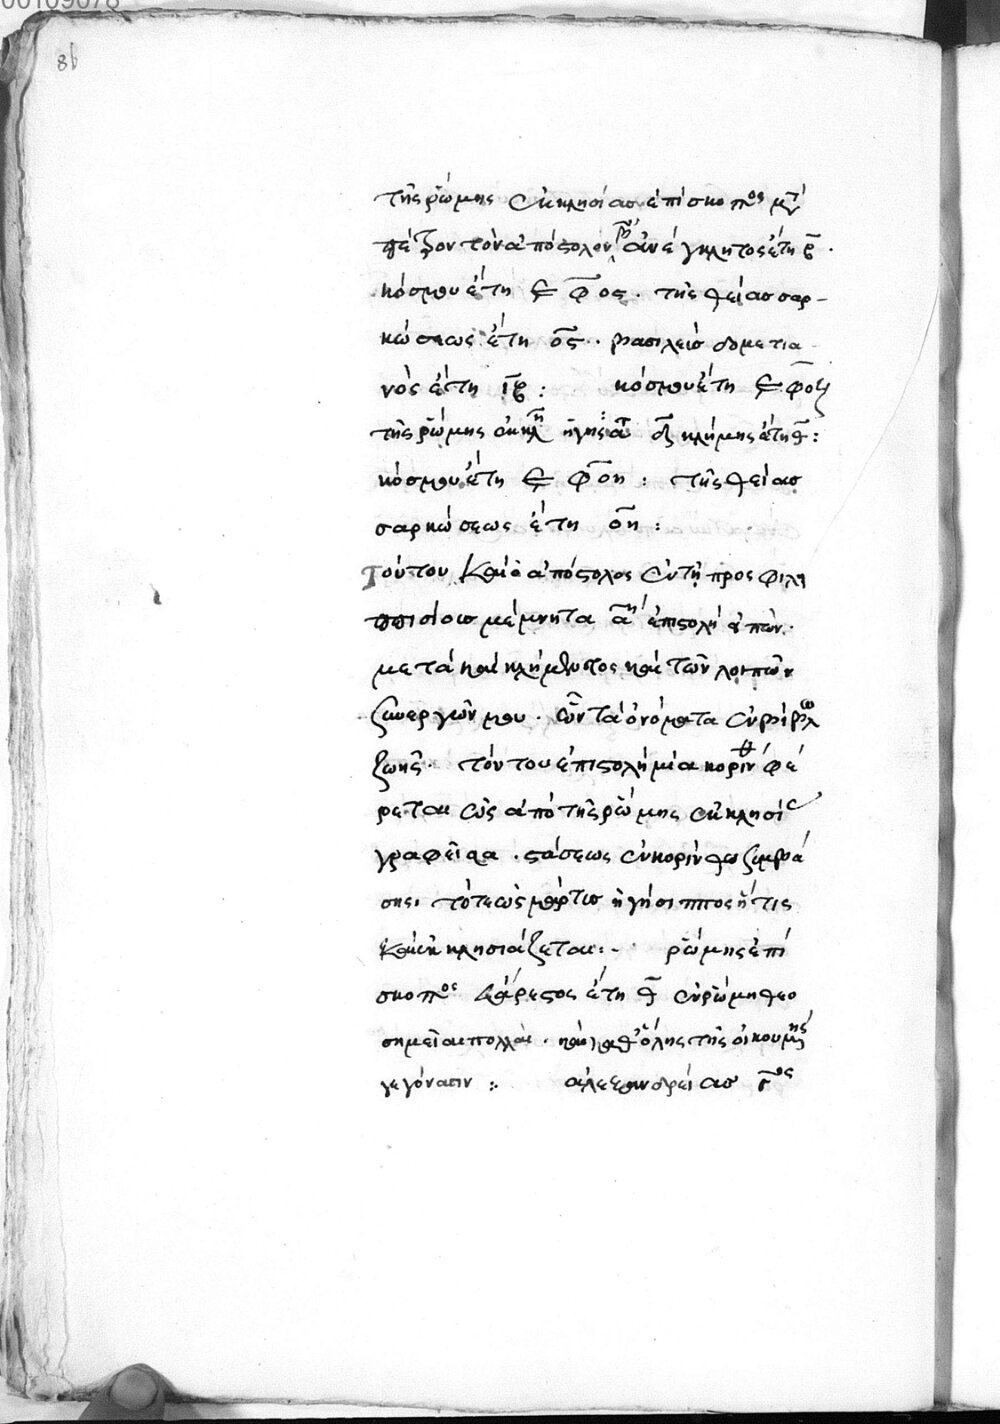 00109078
86
τῆς ῥώμης ἐκκλησίας ἐπίσκοπος μτ
πέτρον τὸν ἀπόστολον β ἀνέγκλητος ἔτη β.
κόσμου ἔτη εφος. τῆς θείας σαρ-
κώσεως ἔτη ος. βασιλείας δομετια
νὸς ἔτη ιβ: κόσμου ἔτη εφοζ
τῆς ῥώμης ἐκκλη ἡγήσα δ κλήμης ἔτη θ:
κόσμου ἔτη εφοη: τῆς θείας
σαρκώσεως ἔτη οη:
Τούτου καὶ ὁ ἀπόστολος ἐν τῆ προς φιλη
ππισίοισ μέμνηται α ἐπιστολῆ εἰπών.
μετὰ καὶ κλήμεντος καὶ τῶν λοιπῶν
συνεργῶν μου. ὧν τὰ ὀνόματα ἐν βίβλω
ζωῆς. τούτου ἐπιστολὴ μία κορινθ φέ
ρεται ὡς ἀπὸ τῆς ῥώμης ἐκκλησί
γραφεῖσα. στάσεως ἐν κορίνθω συμβά
σης. τότε ὡς μάρτυς ἡγήσιππος ἥτις
καὶ ἐκκλησιάζεται:- ῥώμης ἐπί
σκοπος εὐάρεστος ἔτη θ ἐν ῥώμη θεο
σημεῖαι πολλαὶ. καὶ καθ ὅλης τῆς οἰκουμης
γεγόνασιν: ἀλεξανδρείας γος